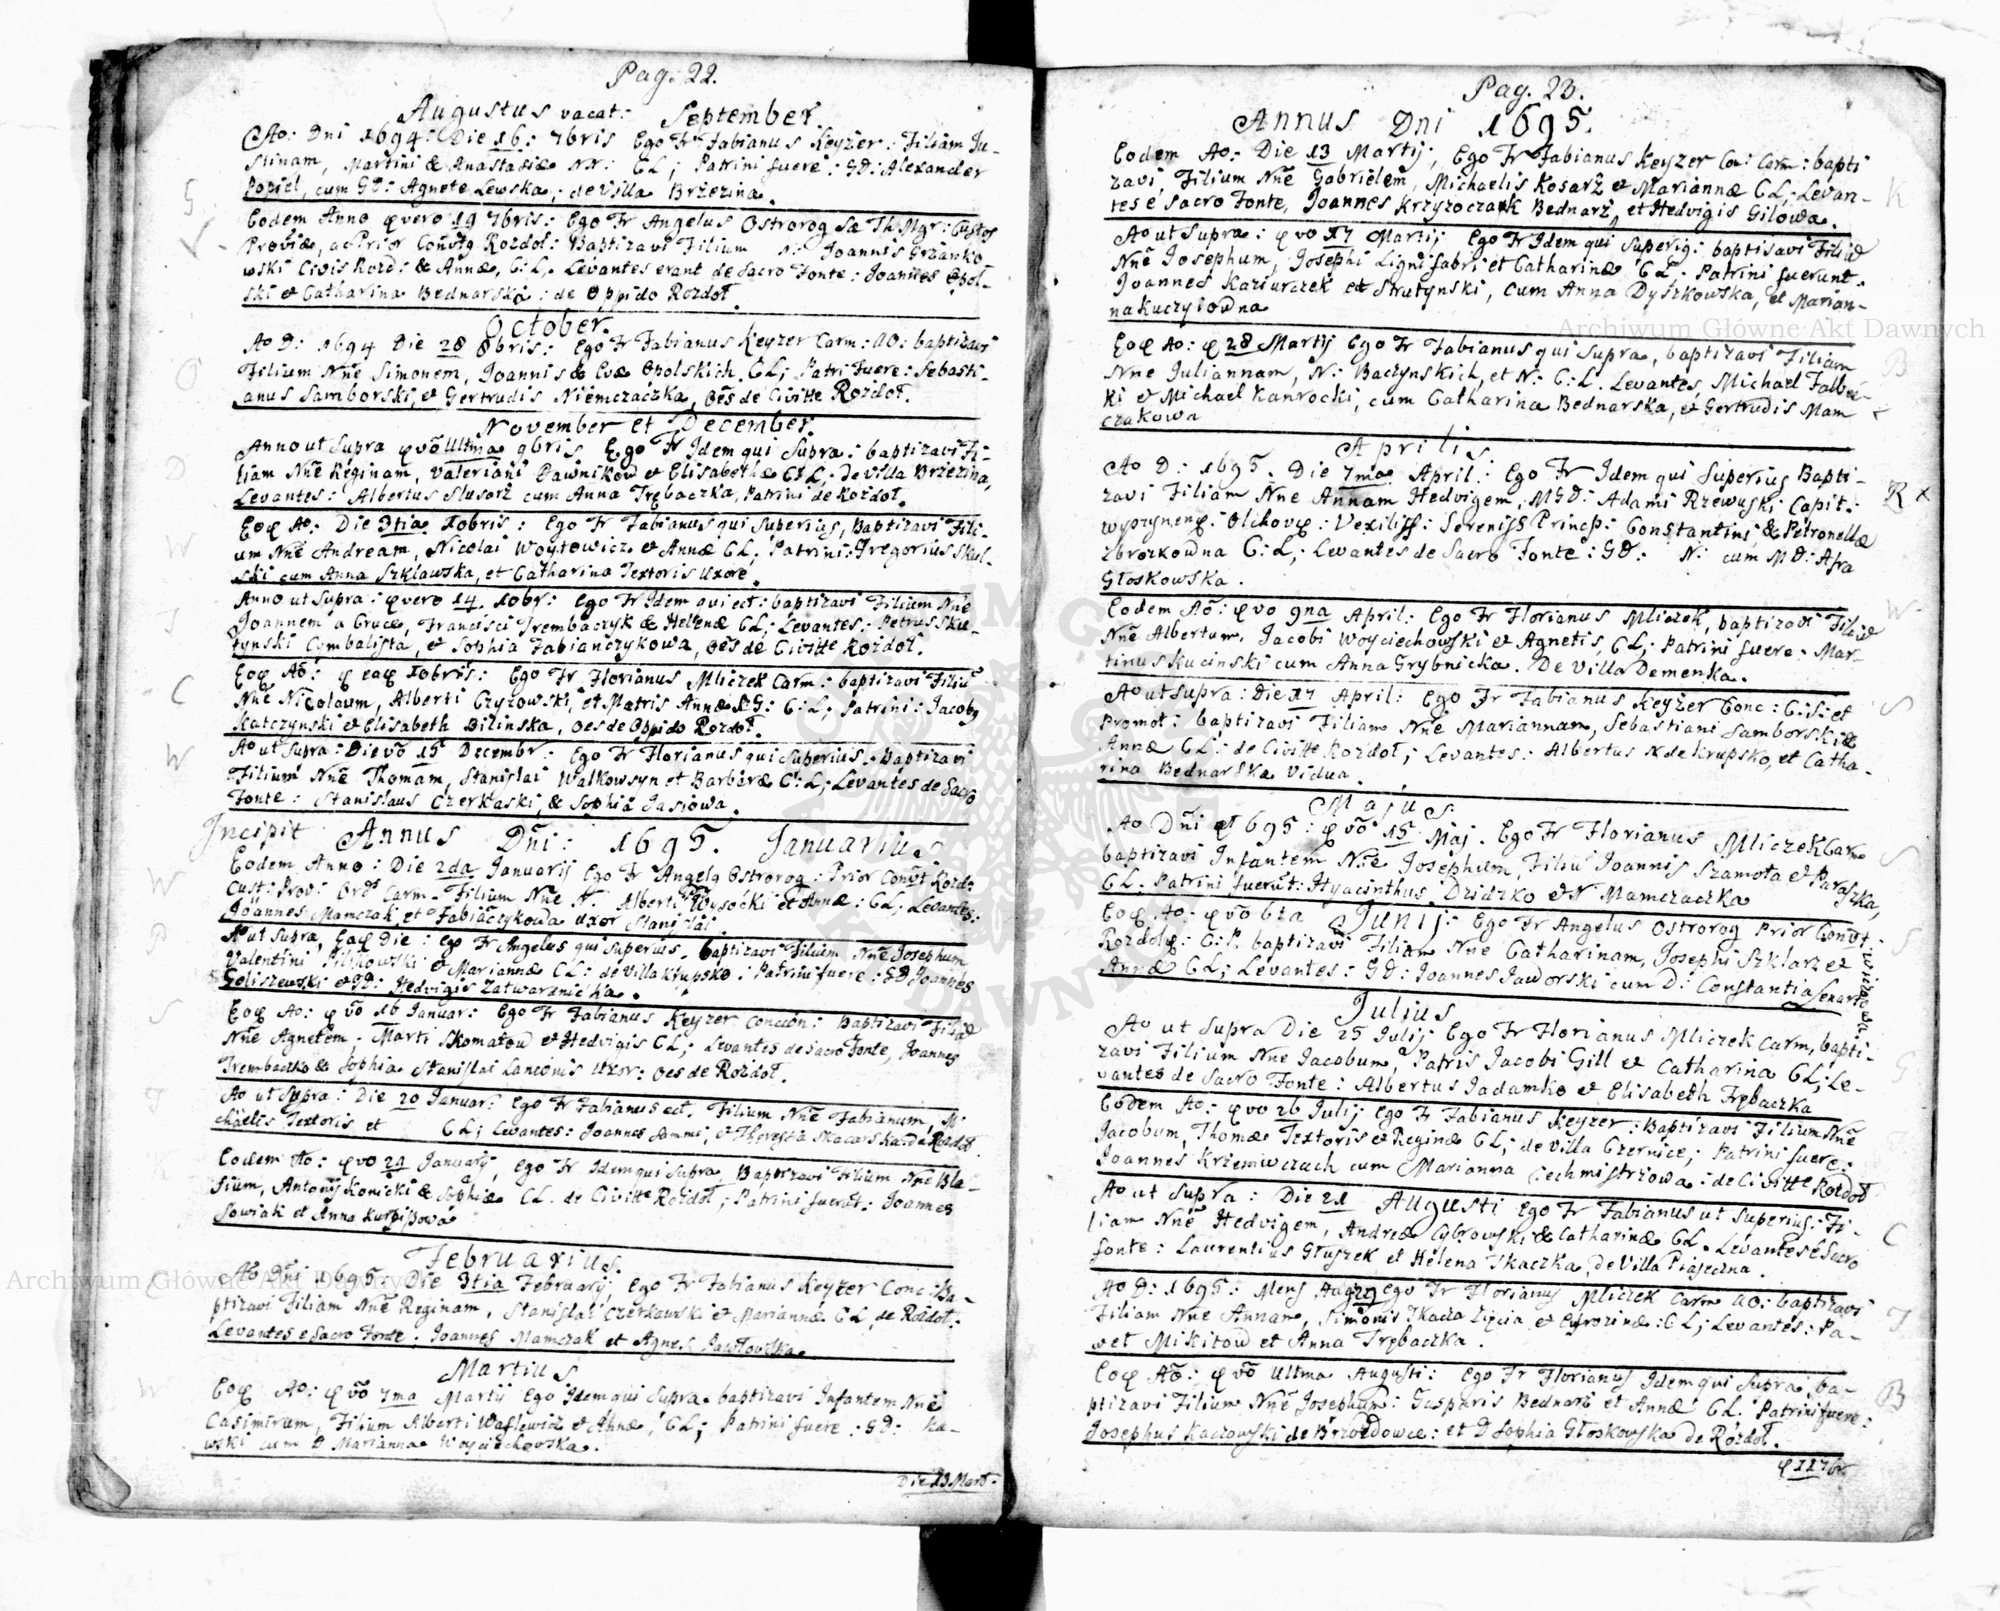 Pag. 22.
Augustus vacat: September.
Ao: Dni 1694: Die 16: 7bris Ego Fr Fabianus Keyzer: Filiam Ju-
stinam, Martini & Anastasiæ NN: CL; Patrini fuere: GD: Alexander
Popiel, cum GD: Agnete Lewska, de Villa Brzezina.
Eodem Anno vero 19 7bris: Ego Fr Angelus Ostrorog Sæ Th Mgr: Custos
Proviæ, ac Prior Rozdoł: Baptizavi Filium N: Joannis Grzanko
wski Civis Rozd: & Annæ, C:L. Levantes erant de Sacro Fonte: Joannes Opol-
ski et Catharina Bednarska: de Oppido Rozdoł.
October.
Ao D: 1694 Die 28 8bris: Ego Fr Fabianus Keyzer Carm: AO: baptizavi
Filium Nñe Simonem, Joannis & Evæ Opolskich CL; Patri Fuere: Sebasti-
anus Samborski, et Gertrudis Niemczaczka, oẽs de Civitte Rozdoł.
November et December.
Anno ut Supra Ultima 9bris Ego Fr Idem qui Supra: baptizavi Fi-
liam Nñe Reginam, Valeriani Pawnikow et Elisabethæ C:L, de Villa Brzezina,
Levantes: Albertus Slusarz cum Anna Trębaczka, Patrini de Rozdoł.
Ao: Die 3tia Xbris: Ego Fr Fabianus qui Superius, Baptizavi Fili-
um Nñe Andream, Nicolai Woytowicz et Annæ CL, Patrini: Gregorius
ski cum Anna Szklawska, et Catharina Textoris Uxore.
Anno ut Supra: vero 14 10br: Ego Fr Idem qui ect: baptizavi Filium Nñe
Joannem a Cruce, Francisci Trembaczyk & Hellenæ CL; Levantes: Petrus
tynski Cymbalista, et Sophia Fabianczykowa, oẽs de Civitte Rozdoł.
Ao: eaq Xbris: Ego Fr Florianus Mliczek Carm: baptizavi Filiũ
Nñe Nicolaum, Alberti Czyzowski, et Matris Annæ C:L; Patrini: Jacobq
Katczynski et Elisabeth Bilinska, oes de Oppido Rozdoł.
Ao ut Supra: Die vo 15 Decembr: Ego Fr Florianus qui Superius. Baptizavi
Filium Nñe Thomam, Stanislai Walkowsyn et Barbaræ C:L; Levantes de Sacro
Fonte: Stanislaus Czerkaski, & Sophia Jasiowa.
Incipit Annus Dñi: 1695. Januarius
Eodem Anno: Die 2da Januarij Ego Fr Angelq Ostrorog: Prior Conṽt Rozdo
Cust: Prov: Ord: Carm. Filium Nñe N: Alberti Wysocki et Annæ: CL; Levantes:
Joannes Mamczak, et Fabiaczykowa uxor Stanislai.
Ao ut Supra, Die: ego Fr Angelus qui Superius. baptizavi Filium Nñe Josephum
Valentini Pilikowski et Mariannæ CL: de Villa Krupsko: Patrini fuere: GD Joannes
Goliszewski et GD: Hedvigis Zatwardnicka.
Ao: võ 16 Januar: Ego Fr Fabianus Keyzer Concion: Baptizavi Filiã
Nñe Agnetem; Marti Skomatow et Hedvigis CL; Levantes de Sacro Fonte, Joannes
Trembaczko & Sophia Stanislai Lancionis Uxor: oes de Rozdoł.
Ao ut Supra: Die 20 Januar: Ego Fr Fabianus ect. Filium Nñe Fabianum, Mi
chaelis Textoris et CL; Levantes: Joannes et Theresia
Eodem Ao: vo 29 Januarij, Ego Fr Idem qui Supra Baptizavi Filium Nñe Bla-
sium, Antonij Konicki & Sophiæ CL. de Civitte Rozdoł; Patrini fuerũt: Joannes
Sowiak et Anna
Februarius.
Ao Dñi 1695. Die 3tia Februarij, Ego Fr Fabianus Keyzer Conc: Ba-
ptizavi Filiam Nñe Reginam, Stanislai Czerkawski et Mariannæ CL, de Rozdoł.
Levantes e Sacro Fonte: Joannes Mamczak et Agnes Pawłowska.
Martius
Ao: võ 7ma Martij Ego Idem qui Supra baptizavi Infantem Nñe
Casimirum, Filium Alberti Wasilewicz et Annæ, CL; Patrini fuere: GD: Ka-
wski cum D Marianna Woyciechowska.
Die 13 Mart.
Pag. 23.
Annus Dni 1695.
Eodem Ao: Die 13 Martij, Ego Fr Fabianus Keyzer Co: Carm: bapti
zavi Filium Nñe Gabrielem, Michaelis Kosarz et Mariannæ CL; Levan-
tes e Sacro Fonte, Joannes Krzyzoczark Bednarz, et Hedvigis Gilowa.
Ao ut Supra: vo 17 Martij Ego Fr Idem qui superig: baptisavi Filiũ
Nñe Josephum, Josephi Lignifabri et Catharinæ CL. Patrini fuerunt.
Joannes Kaziurczek et Strutynski, cum Anna Dyszkowska, et Marian-
na Kuczyiowna
Ao: 28 Martij Ego Fr Fabianus qui Supra, baptizavi Filiam
Nñe Juliannam, N: Baczynskich, et N: C:L. Levantes, Michael
ki et Michael Kanrocki, cum Catharina Bednarska, et Gertrudis Mam
czakowa
Aprilis
Ao D: 1695. Die 7ma April: Ego Fr Idem qui Superius Bapti-
zavi Filiam Nñe Annam Hedvigem, MGD: Adami Rzewuski Capit:
Vexillif: Sereniss Princip: Constantini & Petronellæ
Zbrozkowna C:L; Levantes de Sacro Fonte: GD: N: cum MD: Afra
Głoskowska.
Eodem Aõ: vo 9na April: Ego Fr Florianus Mliczek, baptizavi Filiũ
Nñe Albertum, Jacobi Woyciechowski et Agnetis, CL; Patrini fuere: Mar-
tinus Kucinski cum Anna Grybnicka. De Villa Demenka.
Ao ut supra: Die 17 April: Ego Fr Fabianus Keyzer Conc: C:S: et
Promot: baptizavi Filiam Nñe Mariannam, Sebastiani Samborski &
Annæ CL: de Civitte Rozdoł; Levantes: Albertus N de Krupsko, et Catha-
rina Bednarska Vidua.
Majus
Ao Dñi 1695: võ 15 Maj. Ego Fr Florianus Mliczek Carm
baptizavi Infantem Nñe Josephum, Filiũ Joannis Szamota et Paraszka,
CL. Patrini fuerũt: Hyacinthus Dzidzko et N Mamczaczka
Ao: võ 6ta Junij: Ego Fr Angelus Ostrorog Prior Conṽt
Rozdol: C:P. baptizavi Filiam Nñe Catharinam, Josephi Szklarz et
Annæ CL; Levantes: GD: Joannes Jaworski cum D: Constantia Lenarto
wiczowa
Julius
Ao ut Supra Die 25 Julij Ego Fr Florianus Mliczek Carm, bapti-
zavi Filium Nñe Jacobum, Patris Jacobi Gill et Catharina CL; Le-
vantes de Sacro Fonte: Albertus Jadamko et Elisabeth Trębaczka
Eodem Ao: vo 26 Julij Ego Fr Fabianus Keyzer: Baptizavi Filium Nñe
Jacobum, Thomæ Textoris et Reginæ CL; de Villa Czernice; Patrini fuere:
Joannes Krzemiwczuch cum Marianna Cechmistrzowa: de Civitte Rozdoł
Ao ut Supra: Die 21 Augusti Ego Fr Fabianus ut superius: Fi-
liam Nñe Hedvigem, Andreæ Cybrowski & Catharinæ CL. Levantes e Sacro
fonte: Laurentius Głuszek et Helena Tkaczka, de Villa Piaseczna.
Ao D: 1695: Mens Aug: 29 Ego Fr Florianus Mliczek Carm AO: baptizavi
Filiam Nñe Annam, Simonis Tkacza et Eufrozinæ: CL; Levantes: Pa-
weł Mikitow et Anna Trębaczka.
Aõ: võ Ultima Augusti: Ego Fr Florianus Idem qui Supra, ba-
ptizavi Filium Nñe Josephum: Gasparis Bednarz et Annæ CL. Patrini fuere:
Josephus Kaczowski de Brzozdowce: et D Sophia Głoskowska de Rozdoł.
11 7br
Archiwum Główne Akt Dawnych
Archiwum Główne Akt Dawnych